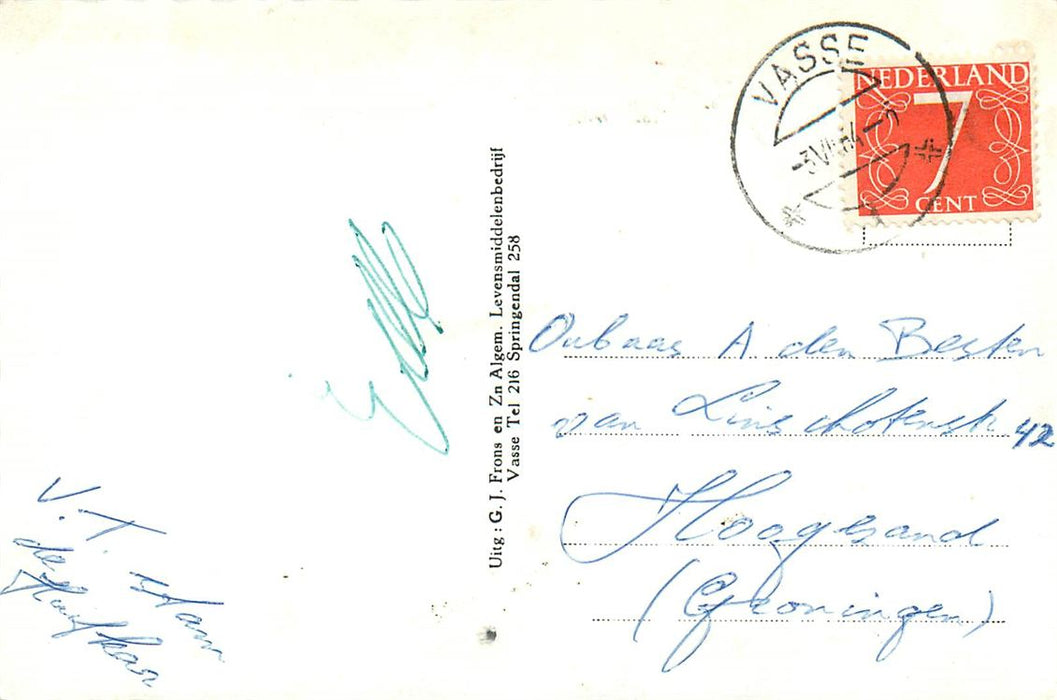 VASSE
-3.VII.64
NEDERLAND
7
CENT
Uitg : G. J. Frons en Zn Algem. Levensmiddelenbedrijf
Vasse Tel 216 Springendal 258
A den Besten
van Linschotenstr 42
Hoogezand
(Groningen)
V.T.
de